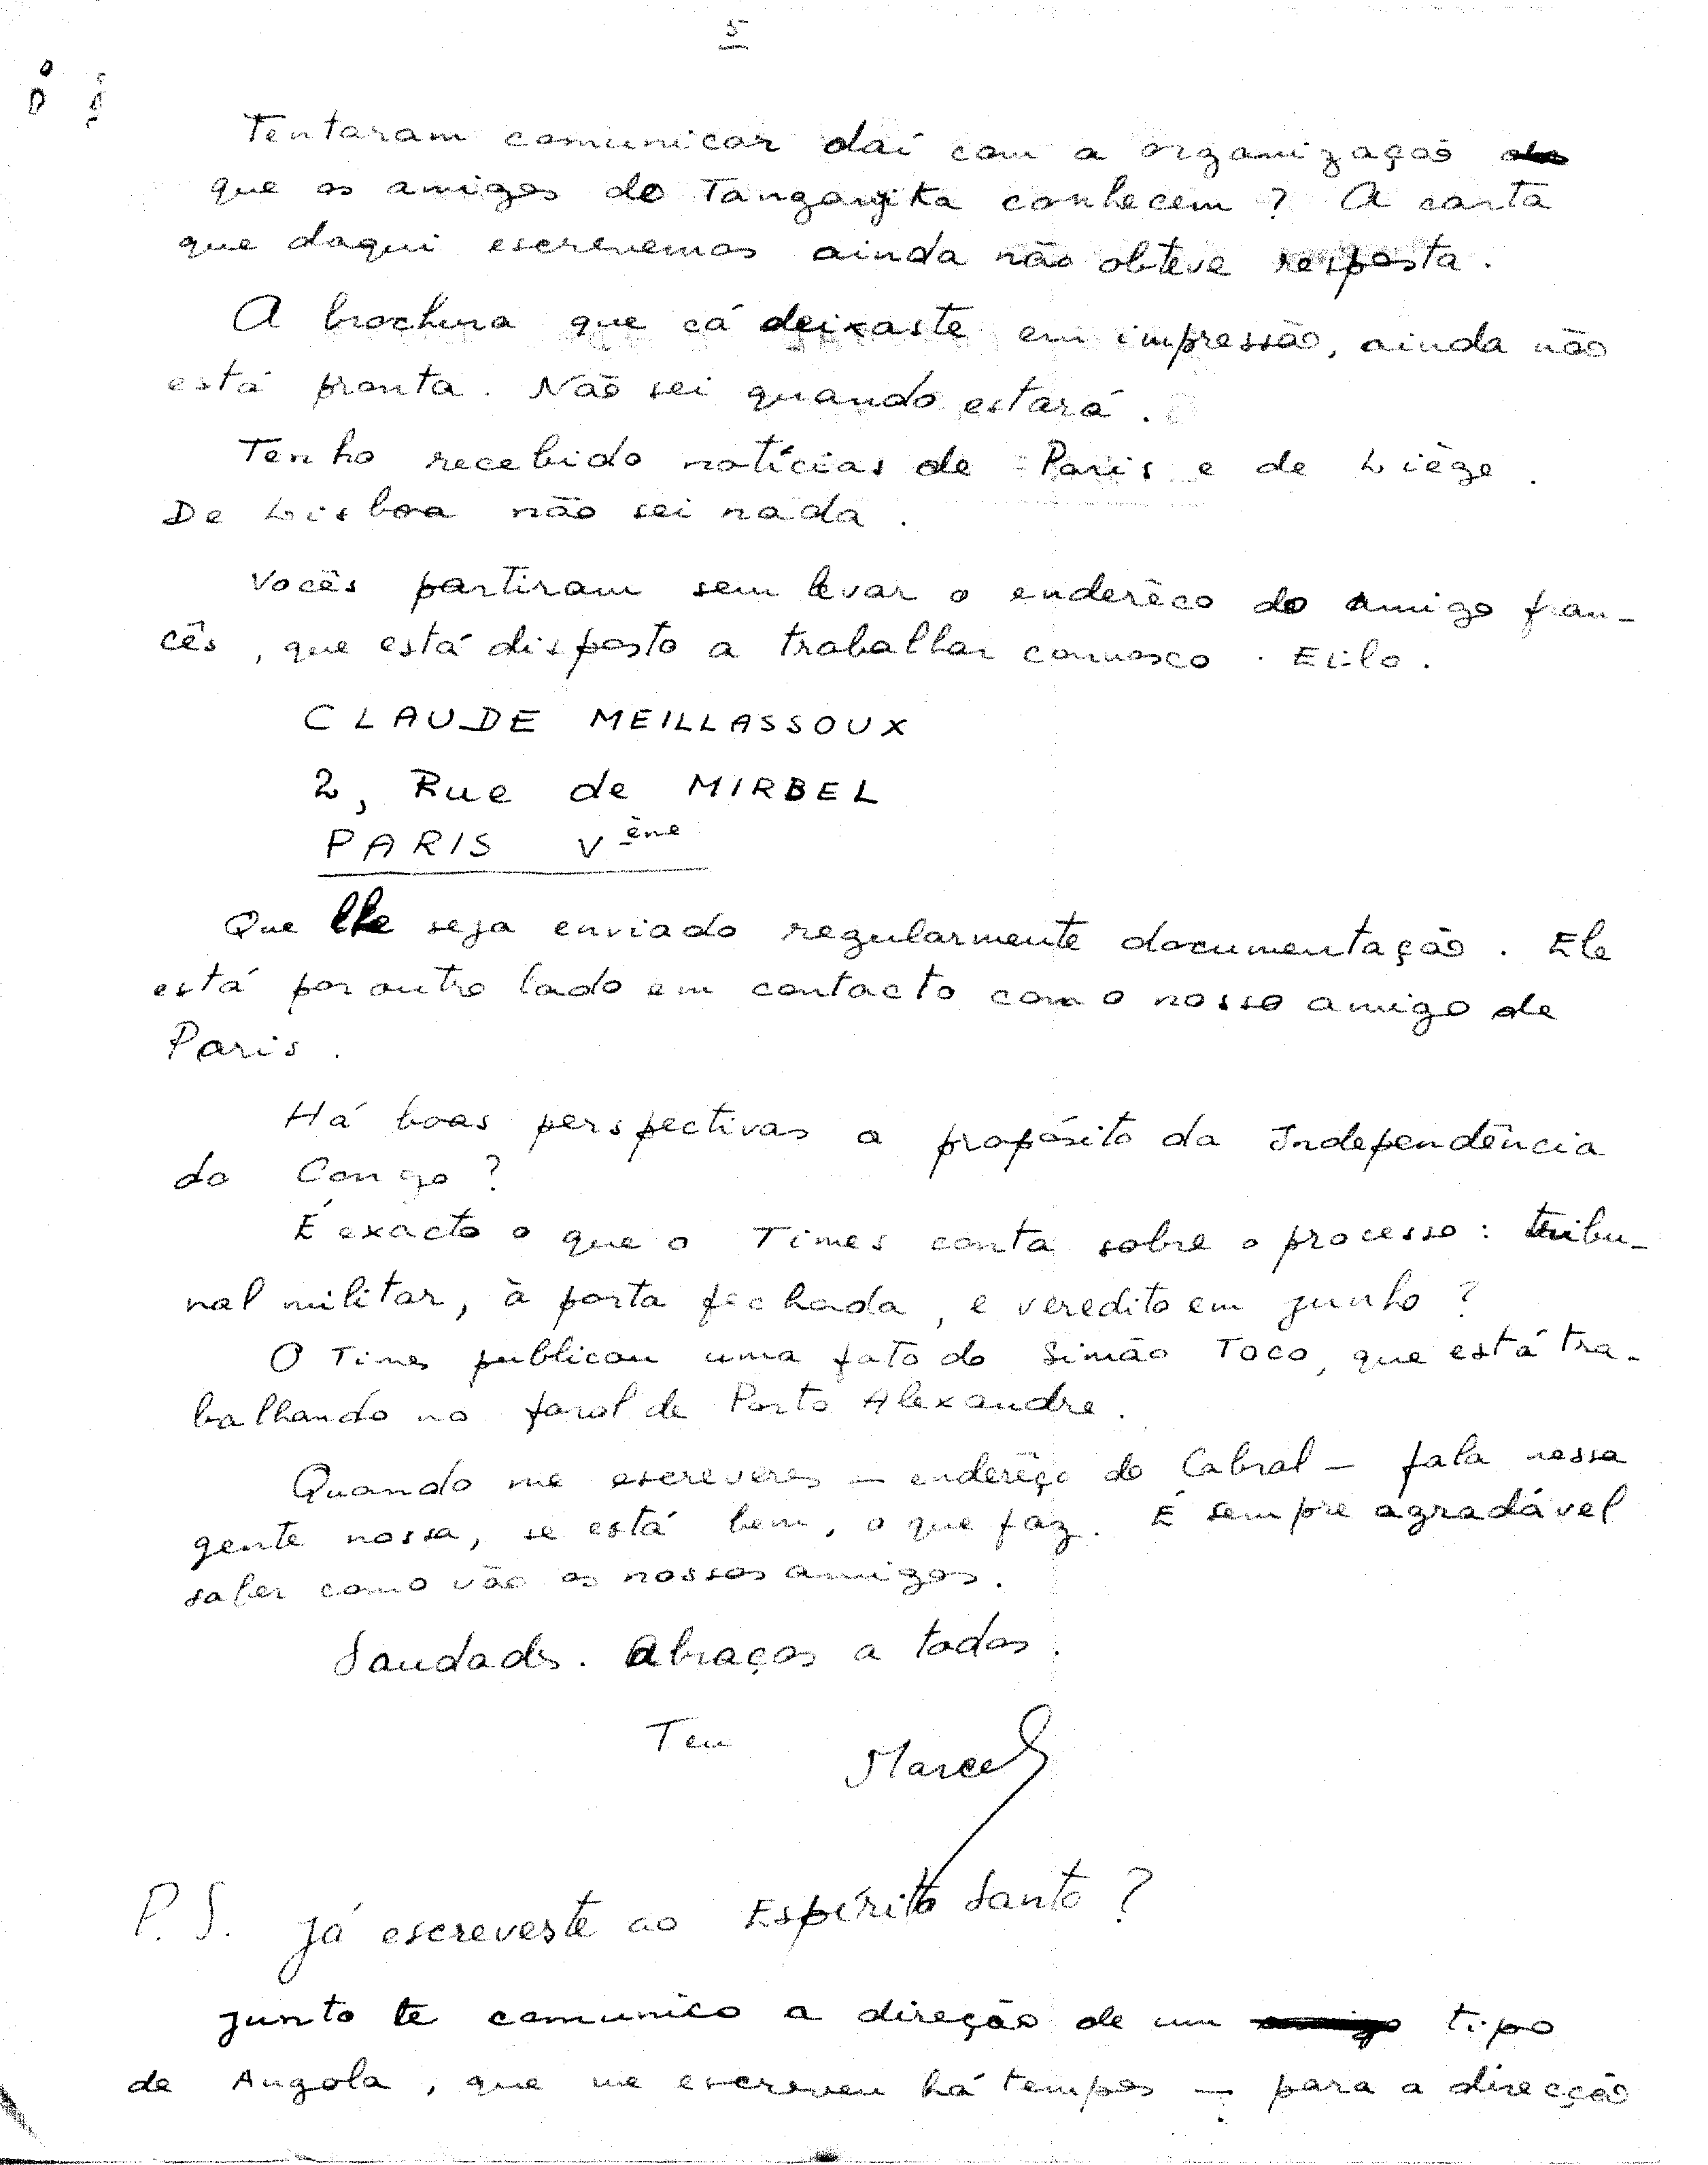 5
Tentaram comunicar daí com a organização
que os amigos do Tanganyika conhecem ? A carta
que daqui escrevemos ainda não obteve resposta .
A brochura que cá deixaste em impressão, ainda não
está pronta . Não sei quando estará .
Tenho recebido notícias de Paris e de Liège .
De Lisboa não sei nada .
Vocês partiram sem levar o enderêço do amigo fran-
cês , que está disposto a trabalhar connosco . Ei-lo .
CLAUDE MEILLASSOUX
2, Rue de MIRBEL
PARIS Vème
Que lhe seja enviado regularmente documentação . Ele
está por outro lado em contacto com o nosso amigo de
Paris .
Há boas perspectivas a propósito da Independência
do Congo ?
É exacto o que o Times conta sobre o processo : tribu-
nal militar, à porta fechada , e veredito em junho ?
O Times publicou uma foto do Simão Toco, que está tra-
balhando no farol de Porto Alexandre .
Quando me escreveres — enderêço do Cabral — fala nessa
gente nossa, se está bem, o que faz . É sempre agradável
saber como vão os nossos amigos .
Saudades . Abraços a todos .
Teu Marcel
P. S. Já escreveste ao Espírito Santo ?
Junto te comunico a direção de um tipo
de Angola , que me escreveu há tempos — para a direcção